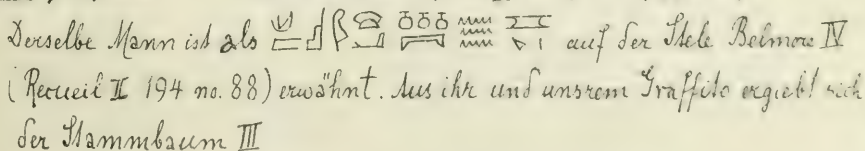 Derselbe Mann ist als auf der Stele Belmore IV
(Recueil II 194 no. 88) erwähnt. Aus ihr und unsrem Graffito ergiebt sich
der Stammbaum III